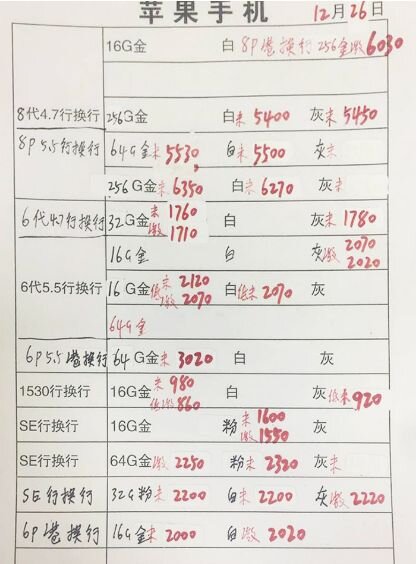 苹果手机 12月26日
16G金 白 8P港换行256金激6030
8代4.7行换行 256G金 白未5400 灰未5450
8P 5.5行换行 64G金未5530 白未5500 灰未
256G金未6350 白未6270 灰未
6代4.7行换行 32G金未1760 激1710 白 灰未1780
16G金 白 灰激2070 2020
6代5.5行换行 16G金未2120 低激2070 白低未2070 灰
64G金
6P 5.5港换行 64G金未3020 白 灰
1530行换行 16G金未980 低激860 白 灰低未920
SE行换行 16G金 粉未1600 激1550 灰
SE行换行 64G金激2250 粉未2320 灰未
SE行换行 32G粉未2200 白未2200 灰激2220
6P港换行 16G金未2000 白激2020